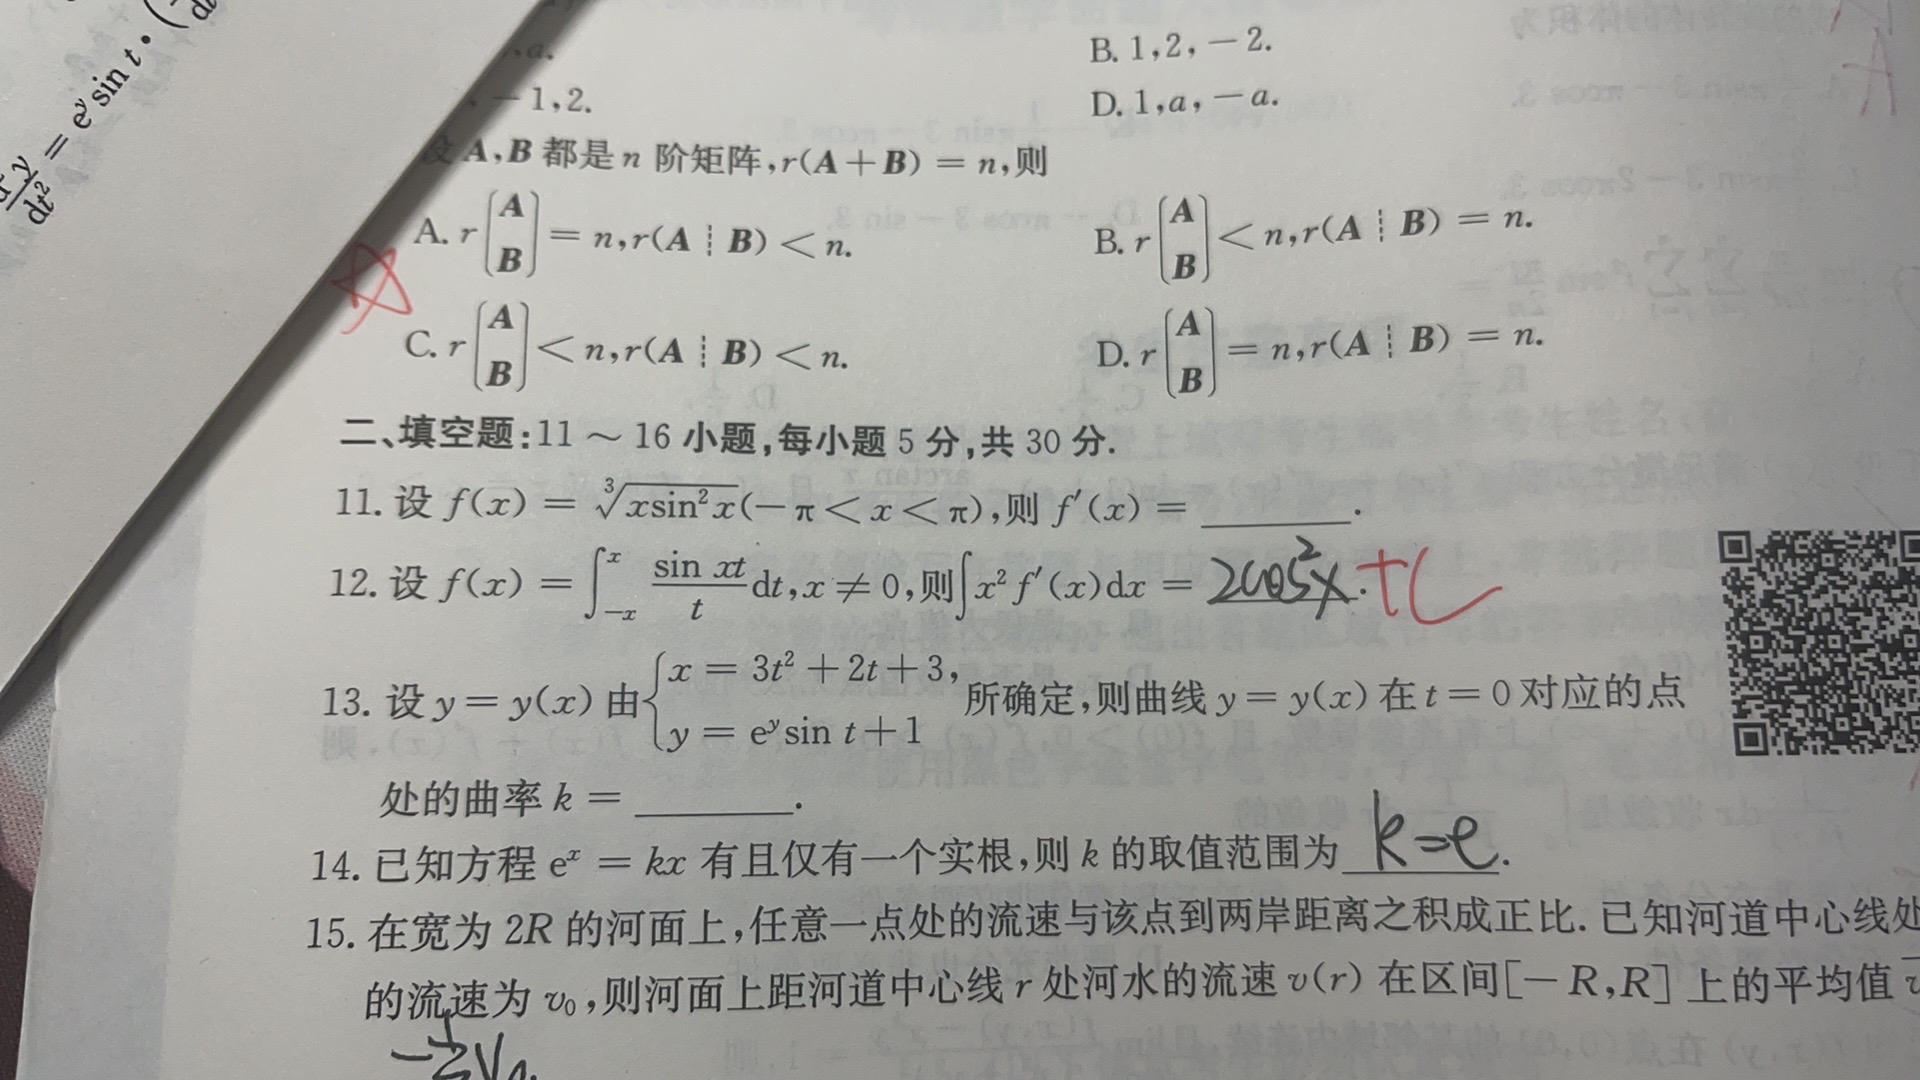 B. 1,2,－2.
－1,2.
D. 1,a,－a.
A,B 都是 n 阶矩阵,r(A＋B) ＝ n,则
A. r(A B) ＝ n,r(A ┊ B) ＜ n.
B. r(A B) ＜ n,r(A ┊ B) ＝ n.
C. r(A B) ＜ n,r(A ┊ B) ＜ n.
D. r(A B) ＝ n,r(A ┊ B) ＝ n.
二、填空题:11 ～ 16 小题,每小题 5 分,共 30 分.
11. 设 f(x) ＝ ∛(xsin²x)(－π＜x＜π),则 f′(x) ＝ ________.
12. 设 f(x) ＝ ∫₋ₓˣ (sin xt)/t dt,x ≠ 0,则∫x² f′(x)dx ＝ 2cos²x². +C
13. 设 y＝ y(x) 由{x ＝ 3t² ＋2t＋3, y ＝ eʸ sin t＋1 所确定,则曲线 y＝ y(x) 在 t＝0 对应的点
处的曲率 k ＝ ________.
14. 已知方程 eˣ ＝ kx 有且仅有一个实根,则 k 的取值范围为 k=e.
15. 在宽为 2R 的河面上,任意一点处的流速与该点到两岸距离之积成正比. 已知河道中心线处
的流速为 v₀,则河面上距河道中心线 r 处河水的流速 v(r) 在区间[－R,R] 上的平均值
＝ eʸ sin t ·